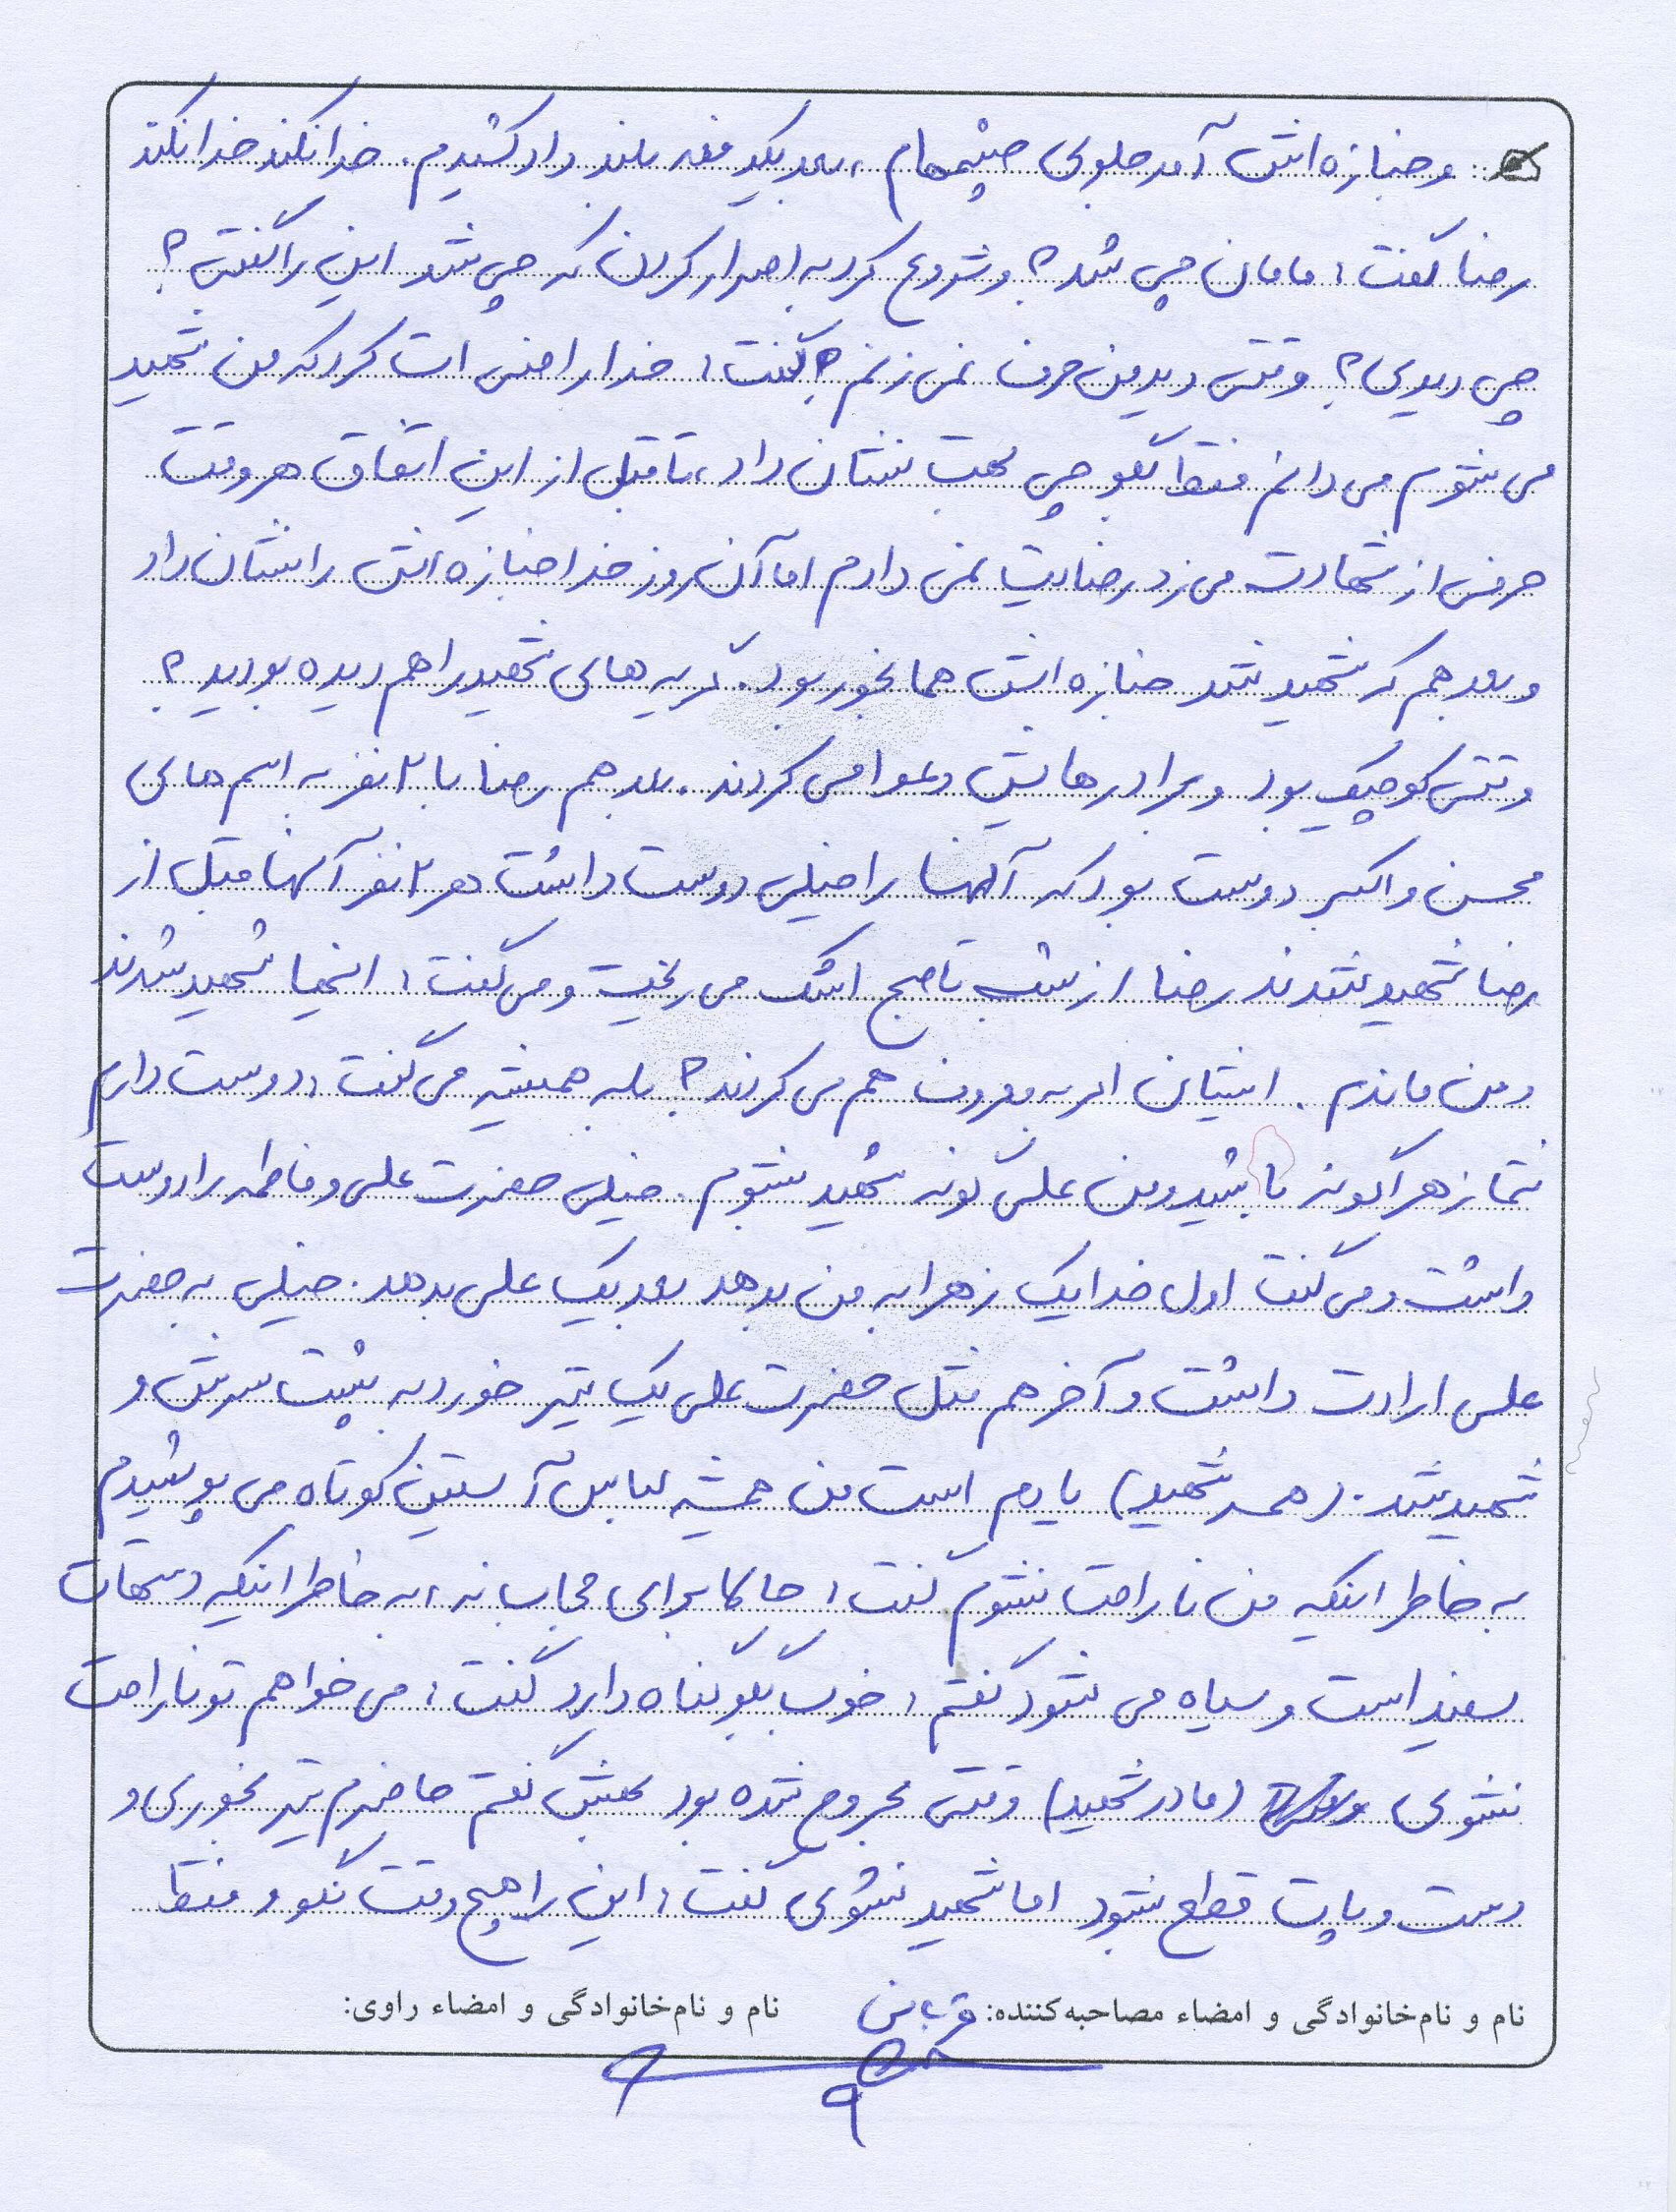 و جنازه اش آمد جلوی چشمهام ، بعد یکدفعه بلند داد کشیدم . خدا نکند خدا نکند
رضا گفت : مامان چی شد ؟ و شروع کرد به اصرار کردن که چی شد این را گفتی ؟
چی دیدی ؟ وقتی دید من حرف نمی زنم گفت : خدا راضی ات کرد که من شهید
می شوم می دانم فقط بگو چی بهت نشان داد ، تا قبل از این اتفاق هر وقت
حرفی از شهادت می زد رضایت نمی دادم اما آن روز خدا جنازه اش را نشان داد
و بعد هم که شهید شد جنازه اش همانجور بود . گریه های شهید را هم دیده بودید ؟
وقتی کوچیک بود و برادرهایش دعوا می کردند . بعد هم رضا با ۲ نفر به اسم های
محسن و اکبر دوست بود که آنها را خیلی دوست داشت هر ۲ نفر آنها قبل از
رضا شهید شدند رضا از شب تا صبح اشک می ریخت و می گفت : اینها شهید شدند
و من ماندم . ایشان امر به معروف هم می کردند ؟ بله همیشه می گفت : دوست دارم
شما زهرا گونه باشید و من علی گونه شهید بشوم . خیلی حضرت علی و فاطمه را دوست
داشت و می گفت اول خدا یک زهرا به من بدهد بعد یک علی بدهد . خیلی به حضرت
علی ارادت داشت و آخر هم مثل حضرت علی یک تیر خورد به پشت سرش و
شهید شد . (همسر شهید) یادم است من همیشه لباس آستین کوتاه می پوشیدم
به خاطر اینکه من ناراحت نشوم گفت : حالا برای حجاب نه ، به خاطر اینکه دستهات
سفید است و سیاه می شود گفتم : خوب بگو گناه دارد گفت : می خواهم تو ناراحت
نشوی (مادر شهید) وقتی مجروح شده بود بهش گفتم حاضرم تیر بخوری و
دست و پات قطع بشود اما شهید نشوی گفت : این را هیچ وقت نگو و فقط
نام و نام‌خانوادگی و امضاء مصاحبه‌کننده: قربانی نام و نام‌خانوادگی و امضاء راوی: